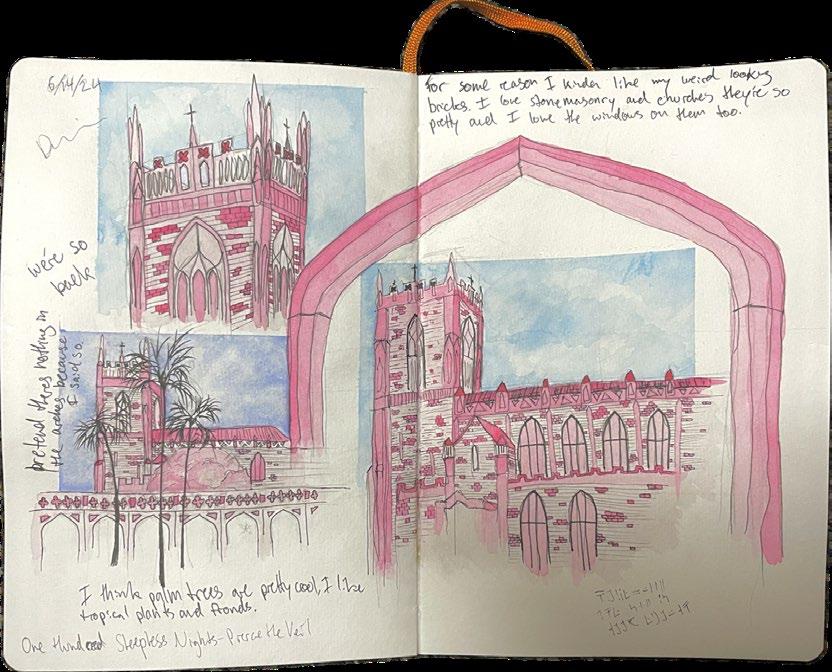 6/14/24
we're so
back
pretend theres nothing in
the arches because
I said so.
I think palm trees are pretty cool, I like
tropical plants and fronds.
One Hundred Sleepless Nights - Pierce the Veil
for some reason I kinda like my weird looking
bricks. I love stonemasonry and churches they're so
pretty and I love the windows on them too.